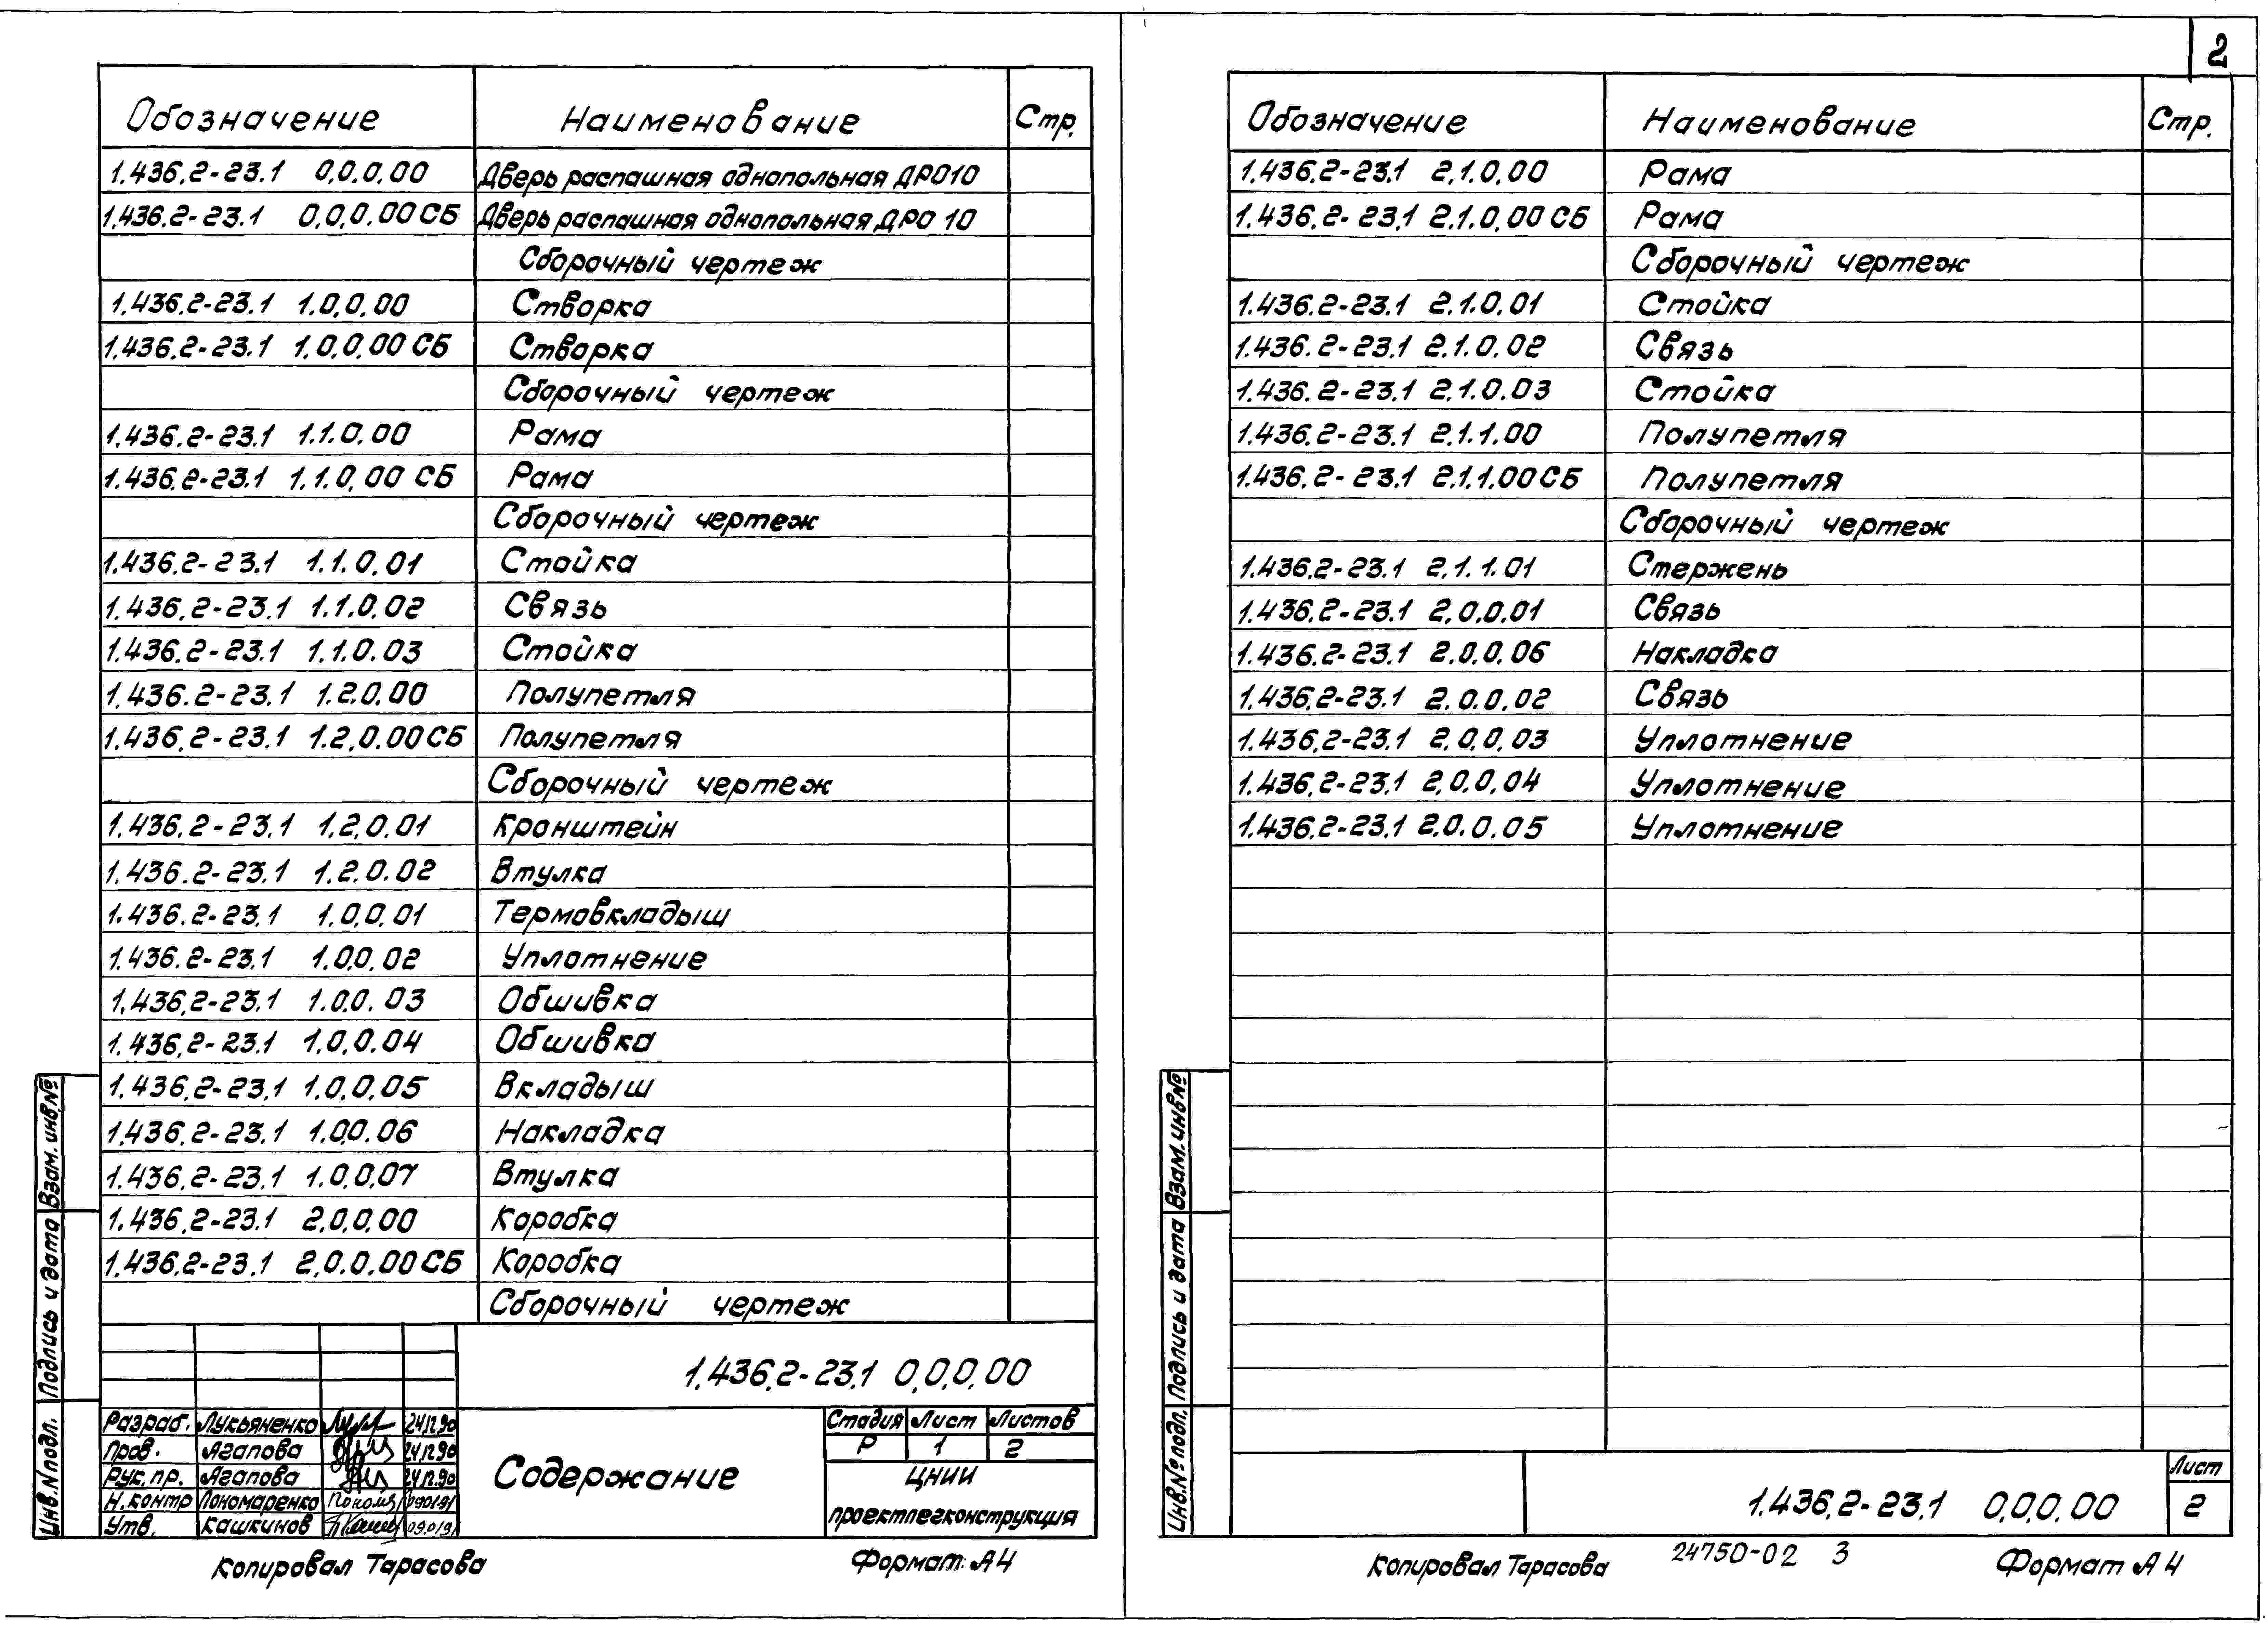 Обозначение Наименование Стр.
1.436.2-23.1 0.0.0.00 Дверь распашная однопольная ДРО10
1.436.2-23.1 0.0.0.00 СБ Дверь распашная однопольная ДРО 10
Сборочный чертеж
1.436.2-23.1 1.0.0.00 Створка
1.436.2-23.1 1.0.0.00 СБ Створка
Сборочный чертеж
1.436.2-23.1 1.1.0.00 Рама
1.436.2-23.1 1.1.0.00 СБ Рама
Сборочный чертеж
1.436.2-23.1 1.1.0.01 Стойка
1.436.2-23.1 1.1.0.02 Связь
1.436.2-23.1 1.1.0.03 Стойка
1.436.2-23.1 1.2.0.00 Полупетля
1.436.2-23.1 1.2.0.00 СБ Полупетля
Сборочный чертеж
1.436.2-23.1 1.2.0.01 Кронштейн
1.436.2-23.1 1.2.0.02 Втулка
1.436.2-23.1 1.0.0.01 Термовкладыш
1.436.2-23.1 1.0.0.02 Уплотнение
1.436.2-23.1 1.0.0.03 Обшивка
1.436.2-23.1 1.0.0.04 Обшивка
1.436.2-23.1 1.0.0.05 Вкладыш
1.436.2-23.1 1.0.0.06 Накладка
1.436.2-23.1 1.0.0.07 Втулка
1.436.2-23.1 2.0.0.00 Коробка
1.436.2-23.1 2.0.0.00 СБ Коробка
Сборочный чертеж
1.436.2-23.1 0.0.0.00
Разраб. Лукьяненко 24.12.90
Пров. Агапова 24.12.90
Рук.пр. Агапова 24.12.90
Н.контр Пономаренко 09.01.91
Утв. Кашкинов 09.01.91
Содержание
Стадия Лист Листов
Р 1 2
ЦНИИ
проектлегконструкция
Взам. инв.№
Подпись и дата
Инв.N подл.
Копировал Тарасова Формат А4
2
Обозначение Наименование Стр.
1.436.2-23.1 2.1.0.00 Рама
1.436.2-23.1 2.1.0.00 СБ Рама
Сборочный чертеж
1.436.2-23.1 2.1.0.01 Стойка
1.436.2-23.1 2.1.0.02 Связь
1.436.2-23.1 2.1.0.03 Стойка
1.436.2-23.1 2.1.1.00 Полупетля
1.436.2-23.1 2.1.1.00 СБ Полупетля
Сборочный чертеж
1.436.2-23.1 2.1.1.01 Стержень
1.436.2-23.1 2.0.0.01 Связь
1.436.2-23.1 2.0.0.06 Накладка
1.436.2-23.1 2.0.0.02 Связь
1.436.2-23.1 2.0.0.03 Уплотнение
1.436.2-23.1 2.0.0.04 Уплотнение
1.436.2-23.1 2.0.0.05 Уплотнение
Взам. инв.№
Подпись и дата
Инв.№ подл.
1.436.2-23.1 0.0.0.00
Лист
2
Копировал Тарасова 24750-02 3 Формат А4